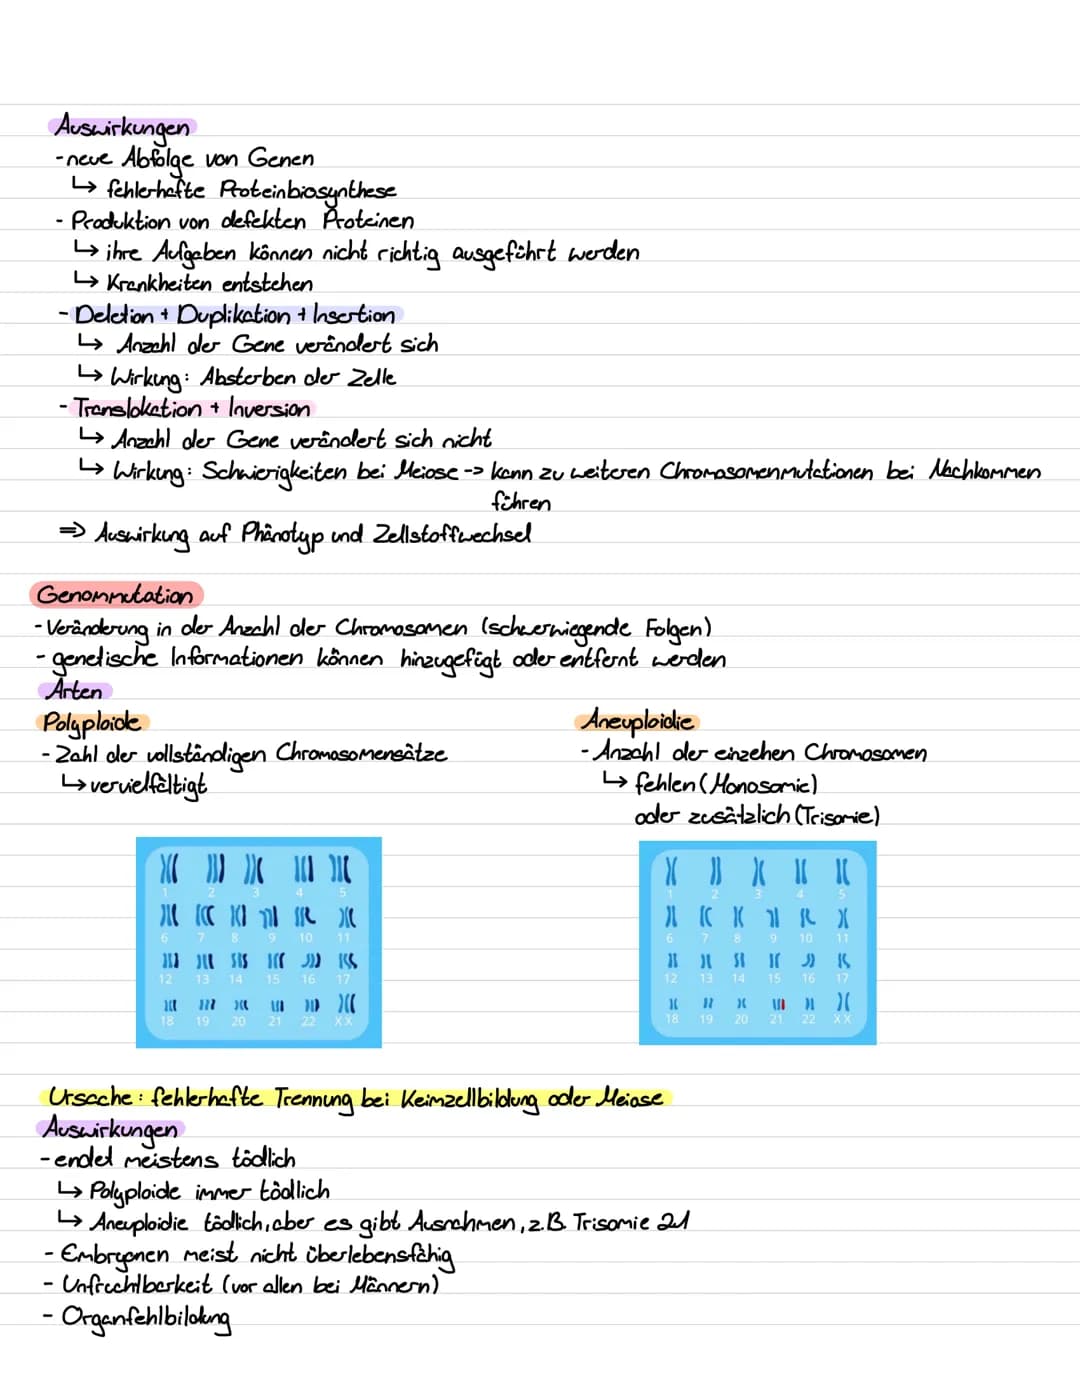 Auswirkungen
- neue Abfolge von Genen
↳ fehlerhafte Proteinbiosynthese
- Produktion von defekten Proteinen
↳ ihre Aufgaben können nicht richtig ausgeführt werden
↳ Krankheiten entstehen
- Deletion + Duplikation + Insertion
↳ Anzahl der Gene verändert sich
↳ Wirkung: Absterben der Zelle
- Translokation + Inversion
↳ Anzahl der Gene verändert sich nicht
↳ Wirkung: Schwierigkeiten bei Meiose -> kann zu weiteren Chromosomenmutationen bei Nachkommen
führen
=> Auswirkung auf Phänotyp und Zellstoffwechsel
Genommutation
- Veränderung in der Anzahl der Chromosomen (schwerwiegende Folgen)
- genetische Informationen können hinzugefügt oder entfernt werden
Arten
Polyploide
- Zahl der vollständigen Chromosomensätze
↳ vervielfältigt
Aneuploidie
- Anzahl der einzelnen Chromosomen
↳ fehlen (Monosomie)
oder zusätzlich (Trisomie)
1 2 3 4 5
6 7 8 9 10 11
12 13 14 15 16 17
18 19 20 21 22 XX
1 2 3 4 5
6 7 8 9 10 11
12 13 14 15 16 17
18 19 20 21 22 XX
Ursache: fehlerhafte Trennung bei Keimzellbildung oder Meiose
Auswirkungen
- endet meistens tödlich
↳ Polyploide immer tödlich
↳ Aneuploidie tödlich, aber es gibt Ausnahmen, z.B. Trisomie 21
- Embryonen meist nicht überlebensfähig
- Unfruchtbarkeit (vor allen bei Männern)
- Organfehlbildung